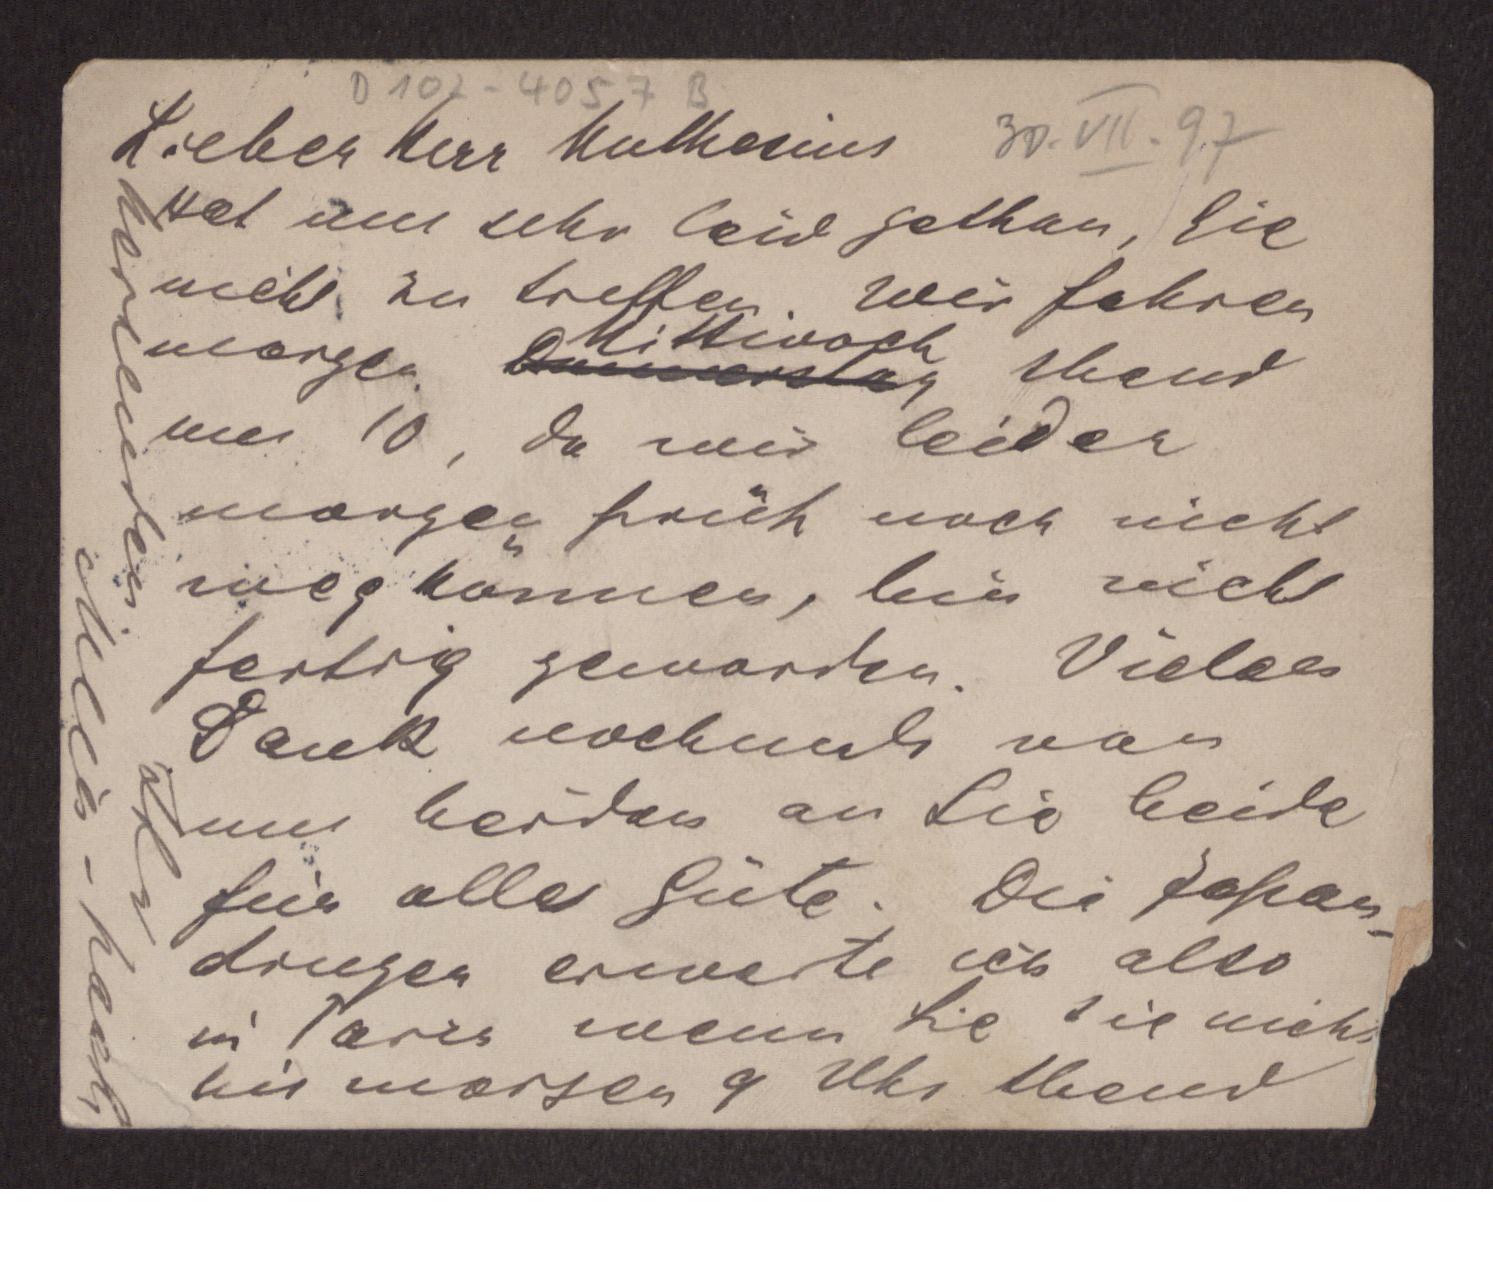 D 102-4057 B
Lieber Herr Muthesius 30. VII. 97
Hat uns sehr leid gethan, Sie
nicht zu treffen. Wir fahren
morgen Mittwoch Abend
um 10, da wir leider
morgen früh noch nicht
weg können, bin nicht
fertig geworden. Vielen
Dank nochmals von
uns beiden an Sie beide
für alles Gute. Die Japan-
dingen erwarte ich also
in Paris wenn Sie sie nicht
bis morgen 9 Uhr Abend
Ihr